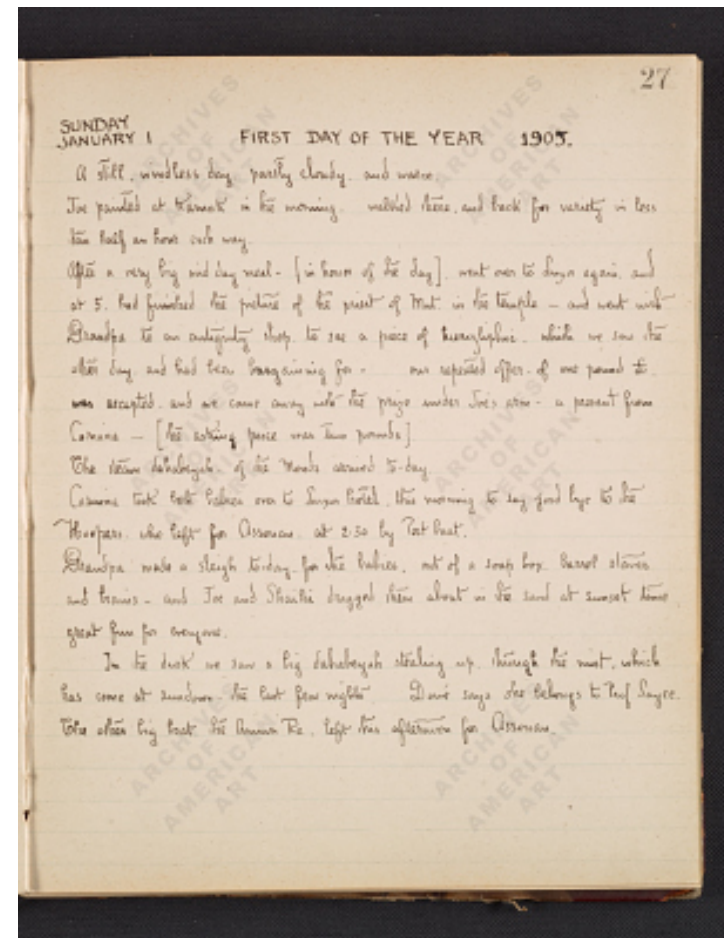 27
SUNDAY
JANUARY 1 FIRST DAY OF THE YEAR 1905.
A still, windless day, partly cloudy, and warm.
Joe painted at Karnak in the morning. walked there, and back for variety in less
than half an hour each way.
After a very big mid day meal - [in honor of the day], went over to Luxor again, and
at 5, had finished the picture of the priest of Mut in the temple - and went with
Grandpa to an antiquity shop, to see a piece of hieroglyphic, which we saw the
other day, and had been bargaining for - our repeated offer of one pound
was accepted, and we came away with the prize under Joe's arm - a present from
[the asking price was two pounds]
The steam dahabeyah of the arrived to-day.
took both babies over to Luxor hotel, this morning to say good bye to the
Hoopers, who left for Assouan, at 2.30 by Post boat.
Grandpa made a sleigh to-day for the babies, out of a soap box, barrel staves
and - and Joe and dragged them about in the sand at sunset time
great fun for everyone.
In the dusk we saw a big dahabeyah stealing up, through the mist, which
has come at sundown the last few nights. says she belongs to Prof Sayce.
The other big boat, the Ammon Ra, left this afternoon for Assouan.
ARCHIVES
OF
AMERICAN
ART
ARCHIVES
OF
AMERICAN
ART
ARCHIVES
OF
AMERICAN
ART
ARCHIVES
OF
AMERICAN
ART
ARCHIVES
OF
AMERICAN
ART
ARCHIVES
OF
AMERICAN
ART